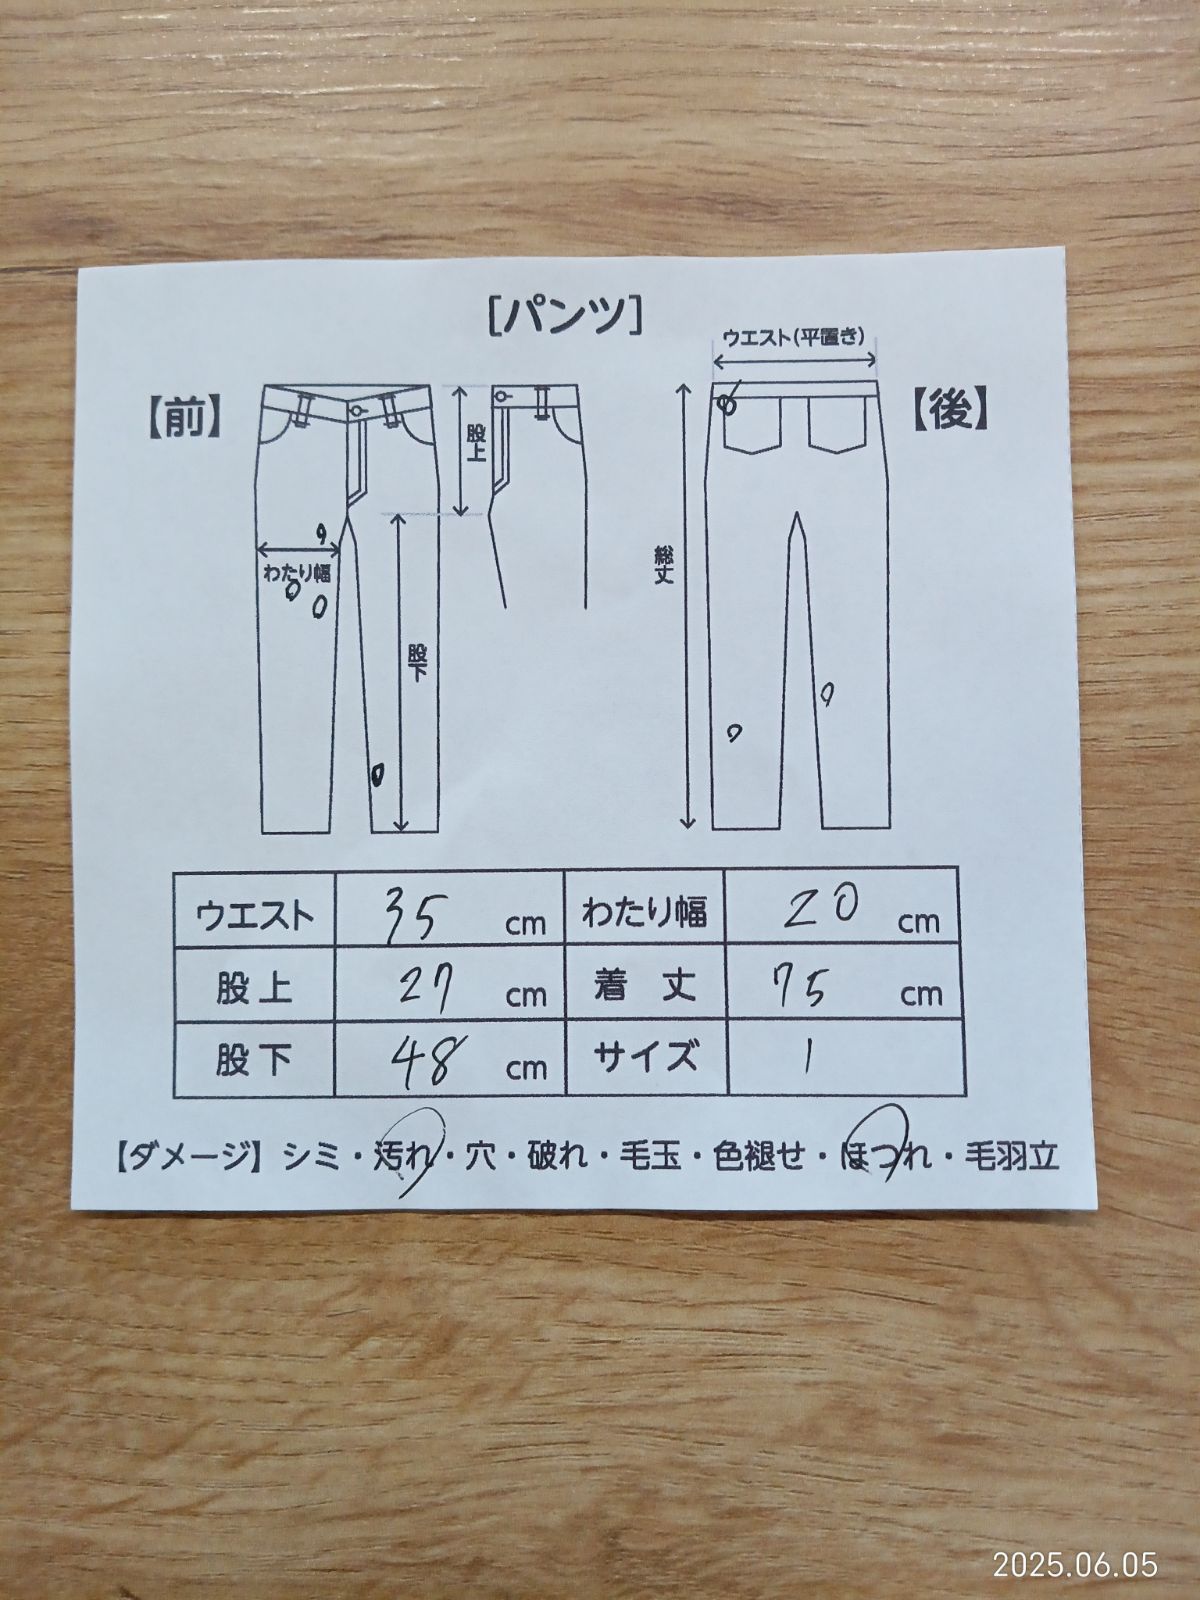 [パンツ]
ウエスト(平置き)
【前】
【後】
股上
わたり幅
股下
総丈
ウエスト 35 cm わたり幅 20 cm
股上 27 cm 着丈 75 cm
股下 48 cm サイズ 1
【ダメージ】シミ・汚れ・穴・破れ・毛玉・色褪せ・ほつれ・毛羽立
2025.06.05